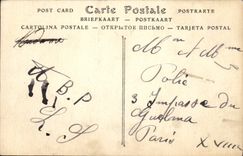 POST CARD Carte Postale POSTKARTE
BRIEFKAART — POSTKAART
CARTOLINA POSTALE — ОТКРЫТОЕ ПИСЬМО — TARJETA POSTAL
Mr & Mme
Polie
3 Impasse du
Guelma
Paris
XVIII
B. P